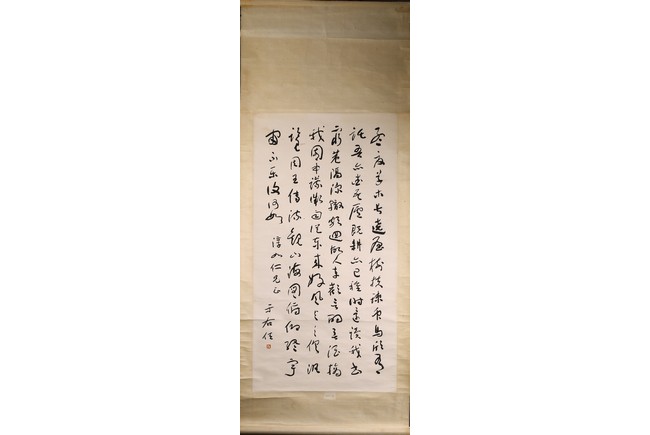 孟夏草木長遶屋樹扶疎衆鳥欣有
託吾亦愛吾廬既耕亦已種時還讀我書
窮巷隔深轍頗迴故人車歡言酌春酒摘
我園中蔬微雨從東來好風與之俱汎
覽周王傳流觀山海圖俯仰終宇
宙不樂復何如
淳如仁兄正
于右任